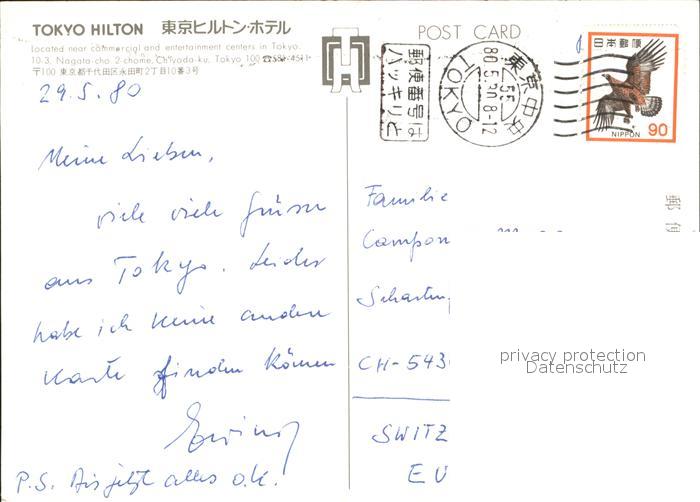 TOKYO HILTON 東京ヒルトン・ホテル
Located near commercial and entertainment centers in Tokyo.
10-3, Nagata-cho 2-chome, Chiyoda-ku, Tokyo 100 ☎581-4511
〒100 東京都千代田区永田町2丁目10番3号
29.5.80
Meine Lieben,
viele viele Grüsse
aus Tokyo. Leider
habe ich keine andere
Karte finden können
P.S. Bis jetzt alles o.k.!
POST CARD
郵便番号は
ハッキリと
東京中央
55
80.5.30.8-12
TOKYO
日本郵便
NIPPON 90
郵便
Familie
Campon
CH-543
SWITZ
EU
privacy protection
Datenschutz